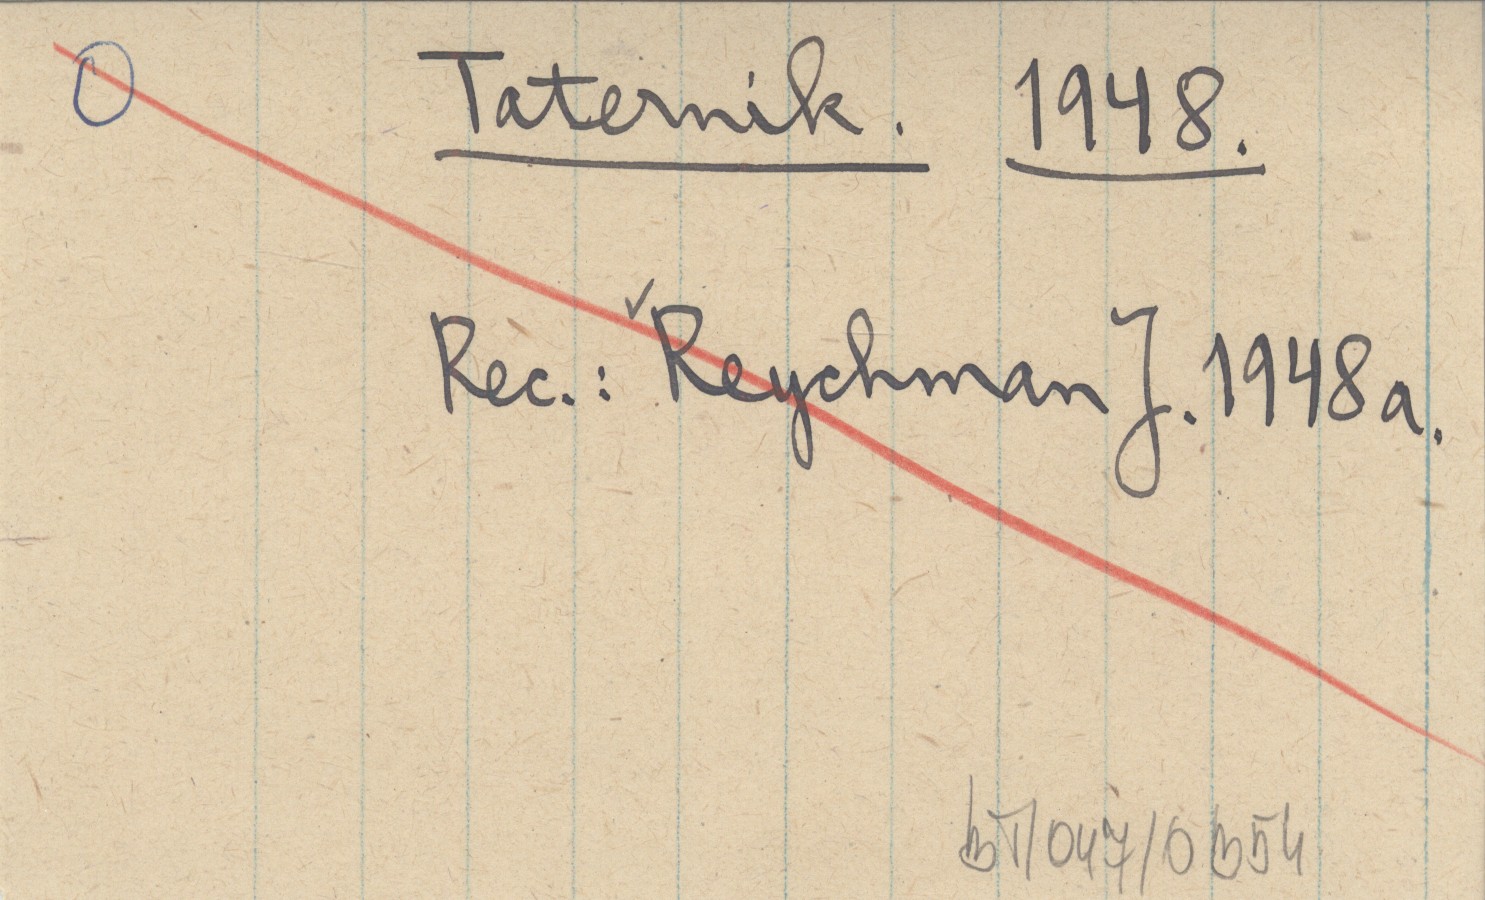 Taternik. 1948.
Rec.: ✓Reychman J. 1948a.
BT/047/0354